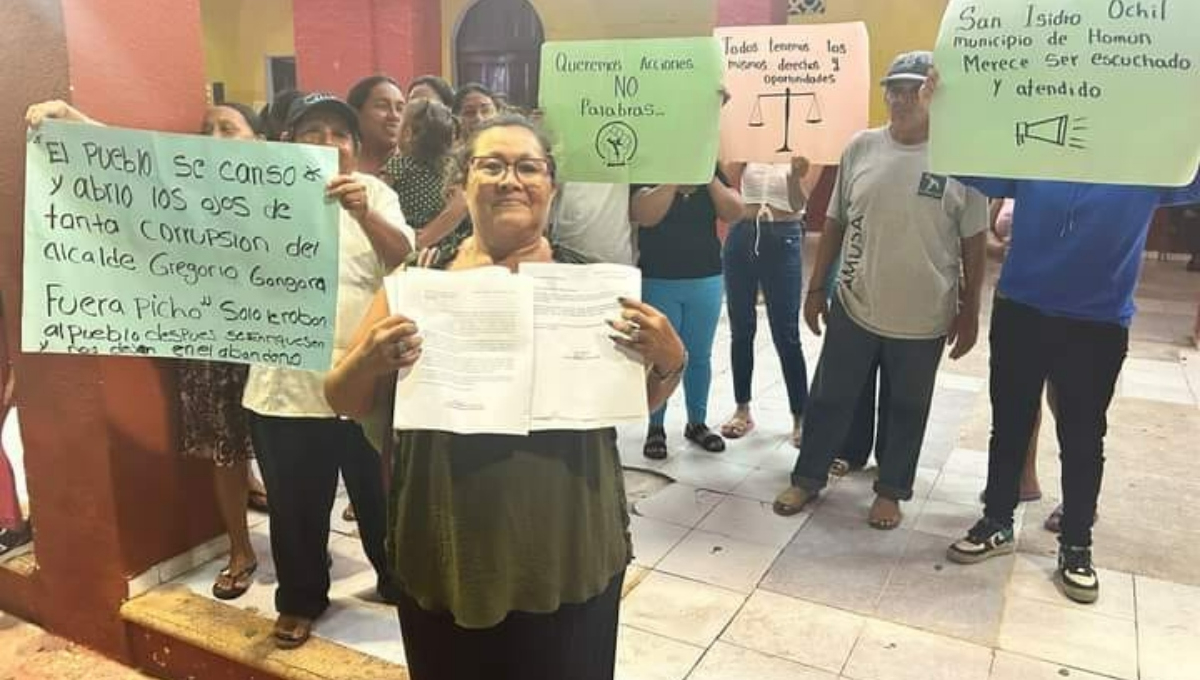 "El PUEBlO se canso*
y abrio los ojos de
tanta corrupsion del
alcalde Gregorio Gongora
Fuera Picho" Solo le roban
al pueblo despues se Enriquesen
y nos dejan en el abandono
Queremos Acciones
NO
Palabras...
Todos tenemos los
mismos derechos y
oportunidades
San Isidro Ochil
municipio de Homun
Merece ser escuchado
y atendido
AMUSA